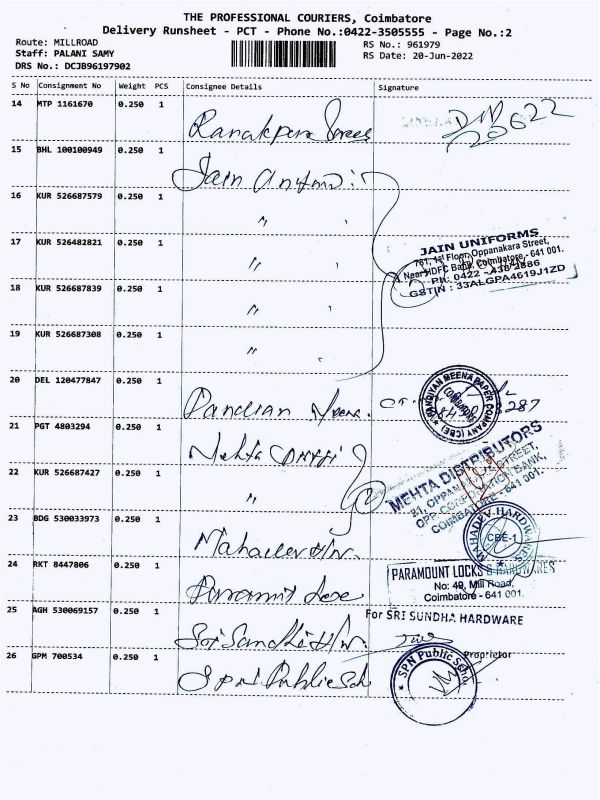 THE PROFESSIONAL COURIERS, Coimbatore
Delivery Runsheet - PCT - Phone No.:0422-3505555 - Page No.:2
Route: MILLROAD
Staff: PALANI SAMY
DRS No.: DCJB96197902
RS No.: 961979
RS Date: 20-Jun-2022
S No Consignment No Weight PCS Consignee Details Signature
14 MTP 1161670 0.250 1
15 BHL 100100949 0.250 1 Jain
16 KUR 526687579 0.250 1 "
17 KUR 526482821 0.250 1 "
JAIN UNIFORMS
781, 1st Floor, Oppanakara Street,
Near HDFC Bank, Coimbatore - 641 001.
PH: 0422 - 438 2886
GSTIN : 33ALGPA4619J1ZD
18 KUR 526687839 0.250 1 "
19 KUR 526687308 0.250 1 "
20 DEL 120477847 0.250 1 Pandian Meena.
PANDIYAN MEENA PAPER COMPANY (CBE)
COIMBATORE
21 PGT 4803294 0.250 1 Mehta
22 KUR 526687427 0.250 1 "
MEHTA DISTRIBUTORS
21, OPPANAKARA STREET,
OPP. CORPORATION BANK,
COIMBATORE - 641 001.
23 BDG 530033973 0.250 1 Mahadev H/w.
MAHADEV HARDWARES
CBE-1
24 RKT 8447806 0.250 1 Paramount
PARAMOUNT LOCKS & HARDWARES
No: 49, Mill Road,
Coimbatore - 641 001.
25 AGH 530069157 0.250 1 Sri Sundha H/w.
For SRI SUNDHA HARDWARE
Proprietor
26 GPM 700534 0.250 1 SPN Public Sch
SPN Public School